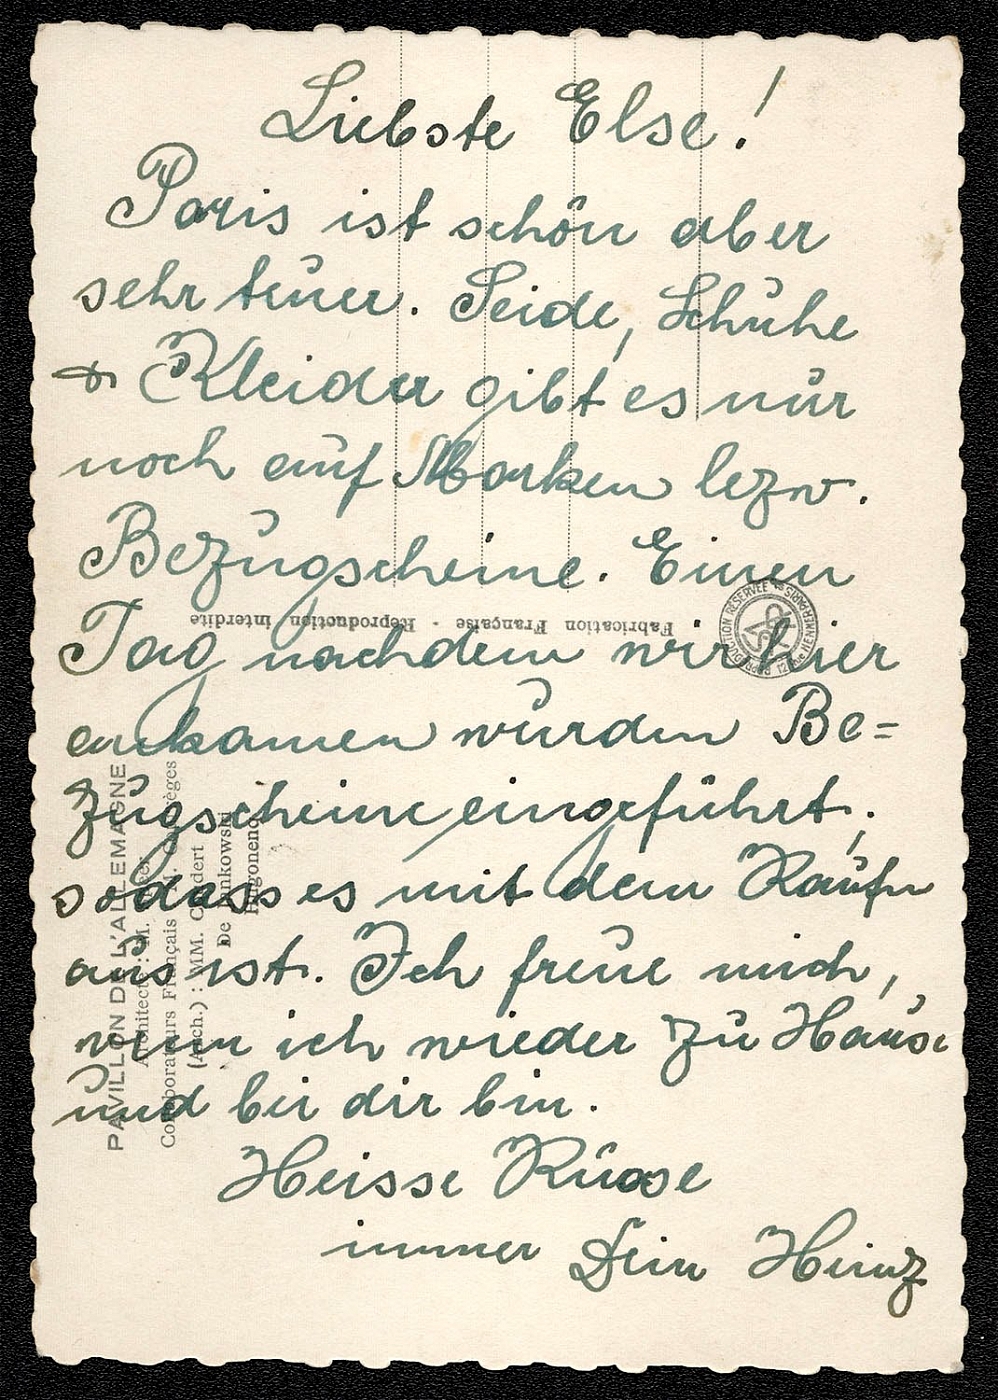 Liebste Else!
Paris ist schön aber
sehr teuer. Seide, Schuhe
& Kleider gibt es nur
noch auf Marken bezw.
Bezugscheine. Einen
Tag nachdem wir hier
ankamen wurden Be=
zugscheine eingeführt,
sodass es mit dem Kaufen
aus ist. Ich freue mich,
wenn ich wieder zu Hause
und bei dir bin.
Heisse Küsse
immer Dein Heinz
Fabrication Française - Reproduction interdite
PAVILLON DE L'ALLEMAGNE
Architecte : M.
Collaborateurs Français : M.
(Arch.) : MM.
De